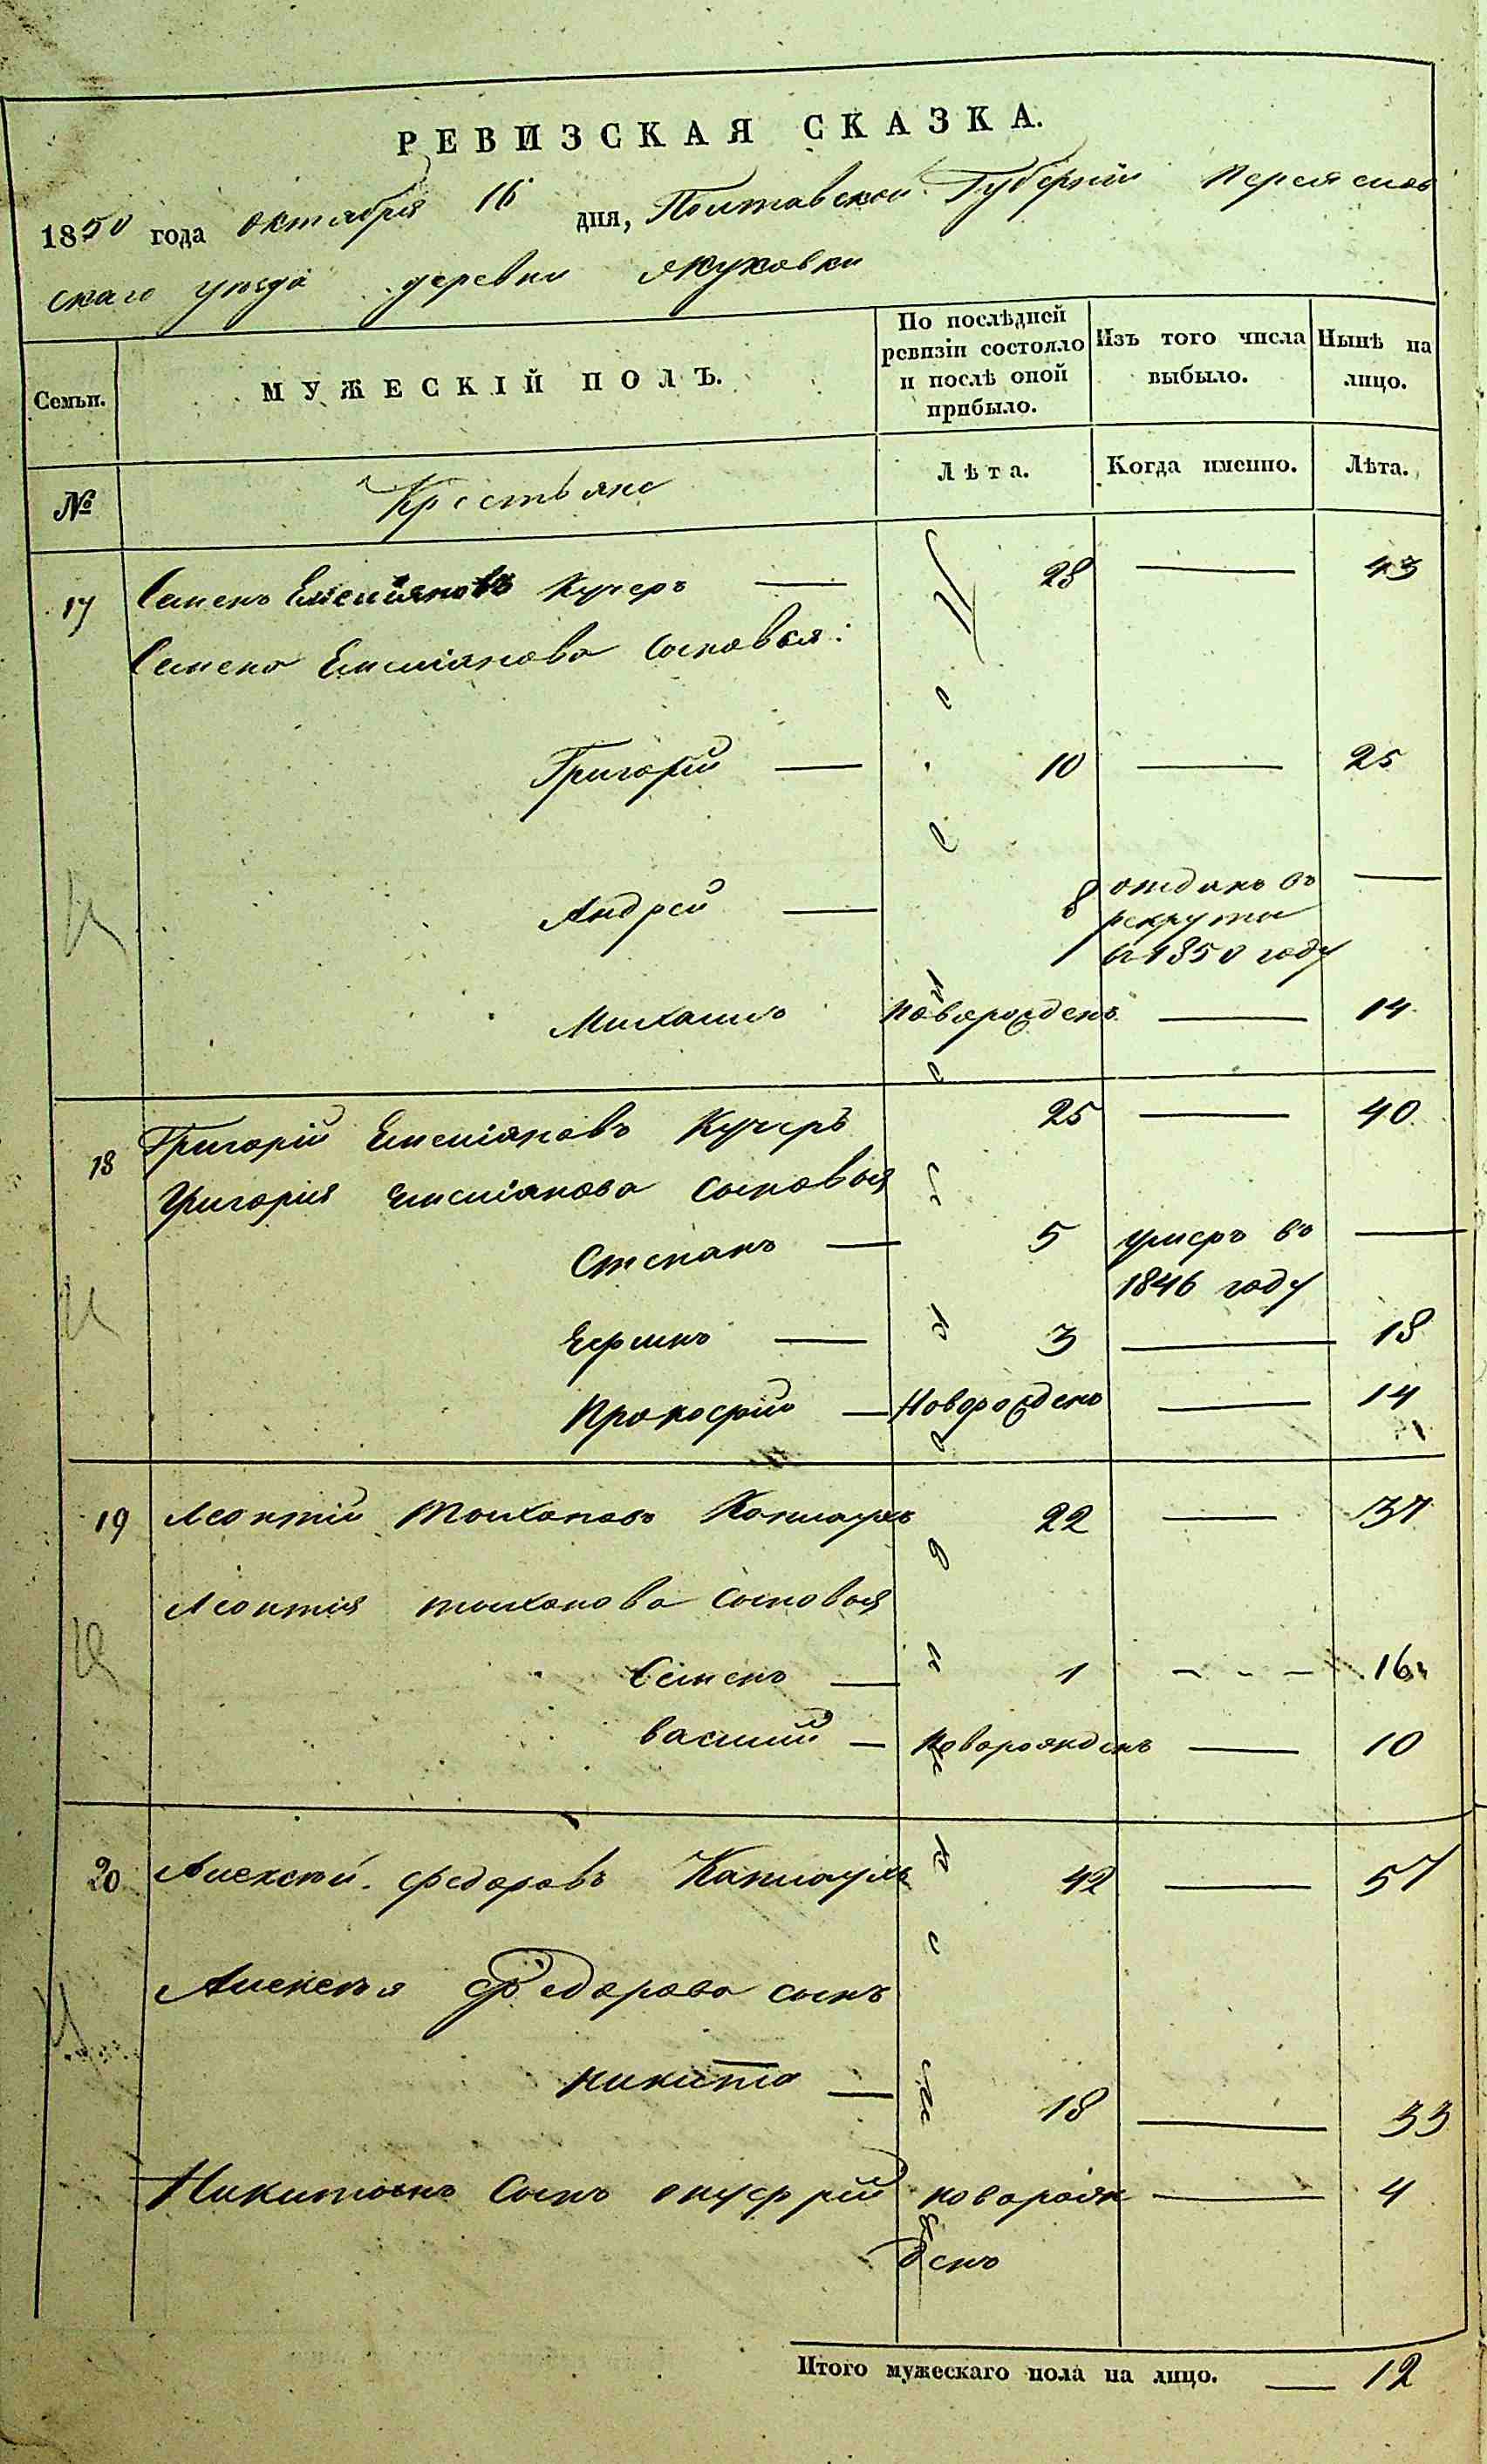 РЕВИЗСКАЯ СКАЗКА.
1850 года октября 16 дня, Полтавской Губерніи Переяслов
скаго уезда деревни Якуховки
Семьи.
МУЖЕСКІЙ ПОЛЪ.
По послѣдней ревизіи состояло и послѣ оной прибыло.
Изъ того числа выбыло.
Нынѣ на лицо.
№
Крестьяне
Лѣта.
Когда именно.
Лѣта.
17 Семенъ Емельяновъ Кучеръ — 28 — 43
Семена Емельянова сыновья:
Григорій — 10 — 25
Андрей — 8 отданъ въ —
рекруты
въ 1850 году
Михаилъ новорожденъ — 14
18 Григорій Емельяновъ Кучеръ 25 — 40
Григорія Емельянова сыновья
Степанъ — 5 умеръ въ —
1846 году
Ефимъ — 3 — 18
Прокофій — Новорожденъ — 14
19 Леонтій Тихоновъ 22 — 37
Леонтія Тихонова сыновья
Семенъ — 1 - - - 16
Василий — новорожденъ — 10
20 Алексей Федоровъ 42 — 57
Алексея Федорова сынъ
Никита — 18 — 33
Никитинъ сынъ Онуфрій новорож — 4
денъ
Итого мужескаго пола на лицо. — 12